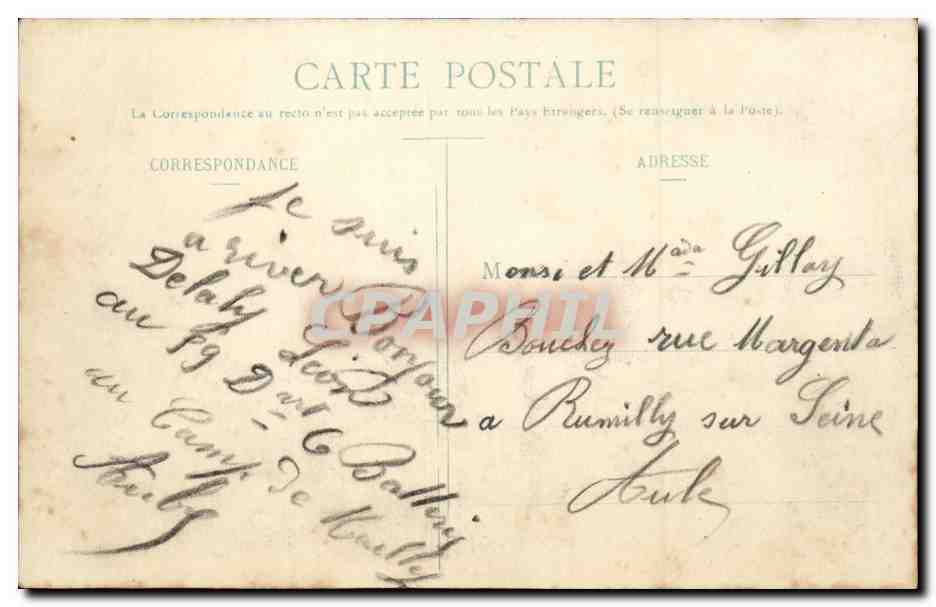 CARTE POSTALE
La Correspondance au recto n'est pas acceptée par tous les Pays Etrangers. (Se renseigner à la Poste).
CORRESPONDANCE
Je suis
a river Bonjour
Delahy Léon
au 59 Dart 6 Battrij
au Camp De Mailly
Aube
ADRESSE
Monsi et Mada Gilloy
Bouchez rue Margenta
a Rumilly sur Seine
Aube
CPAPHIL